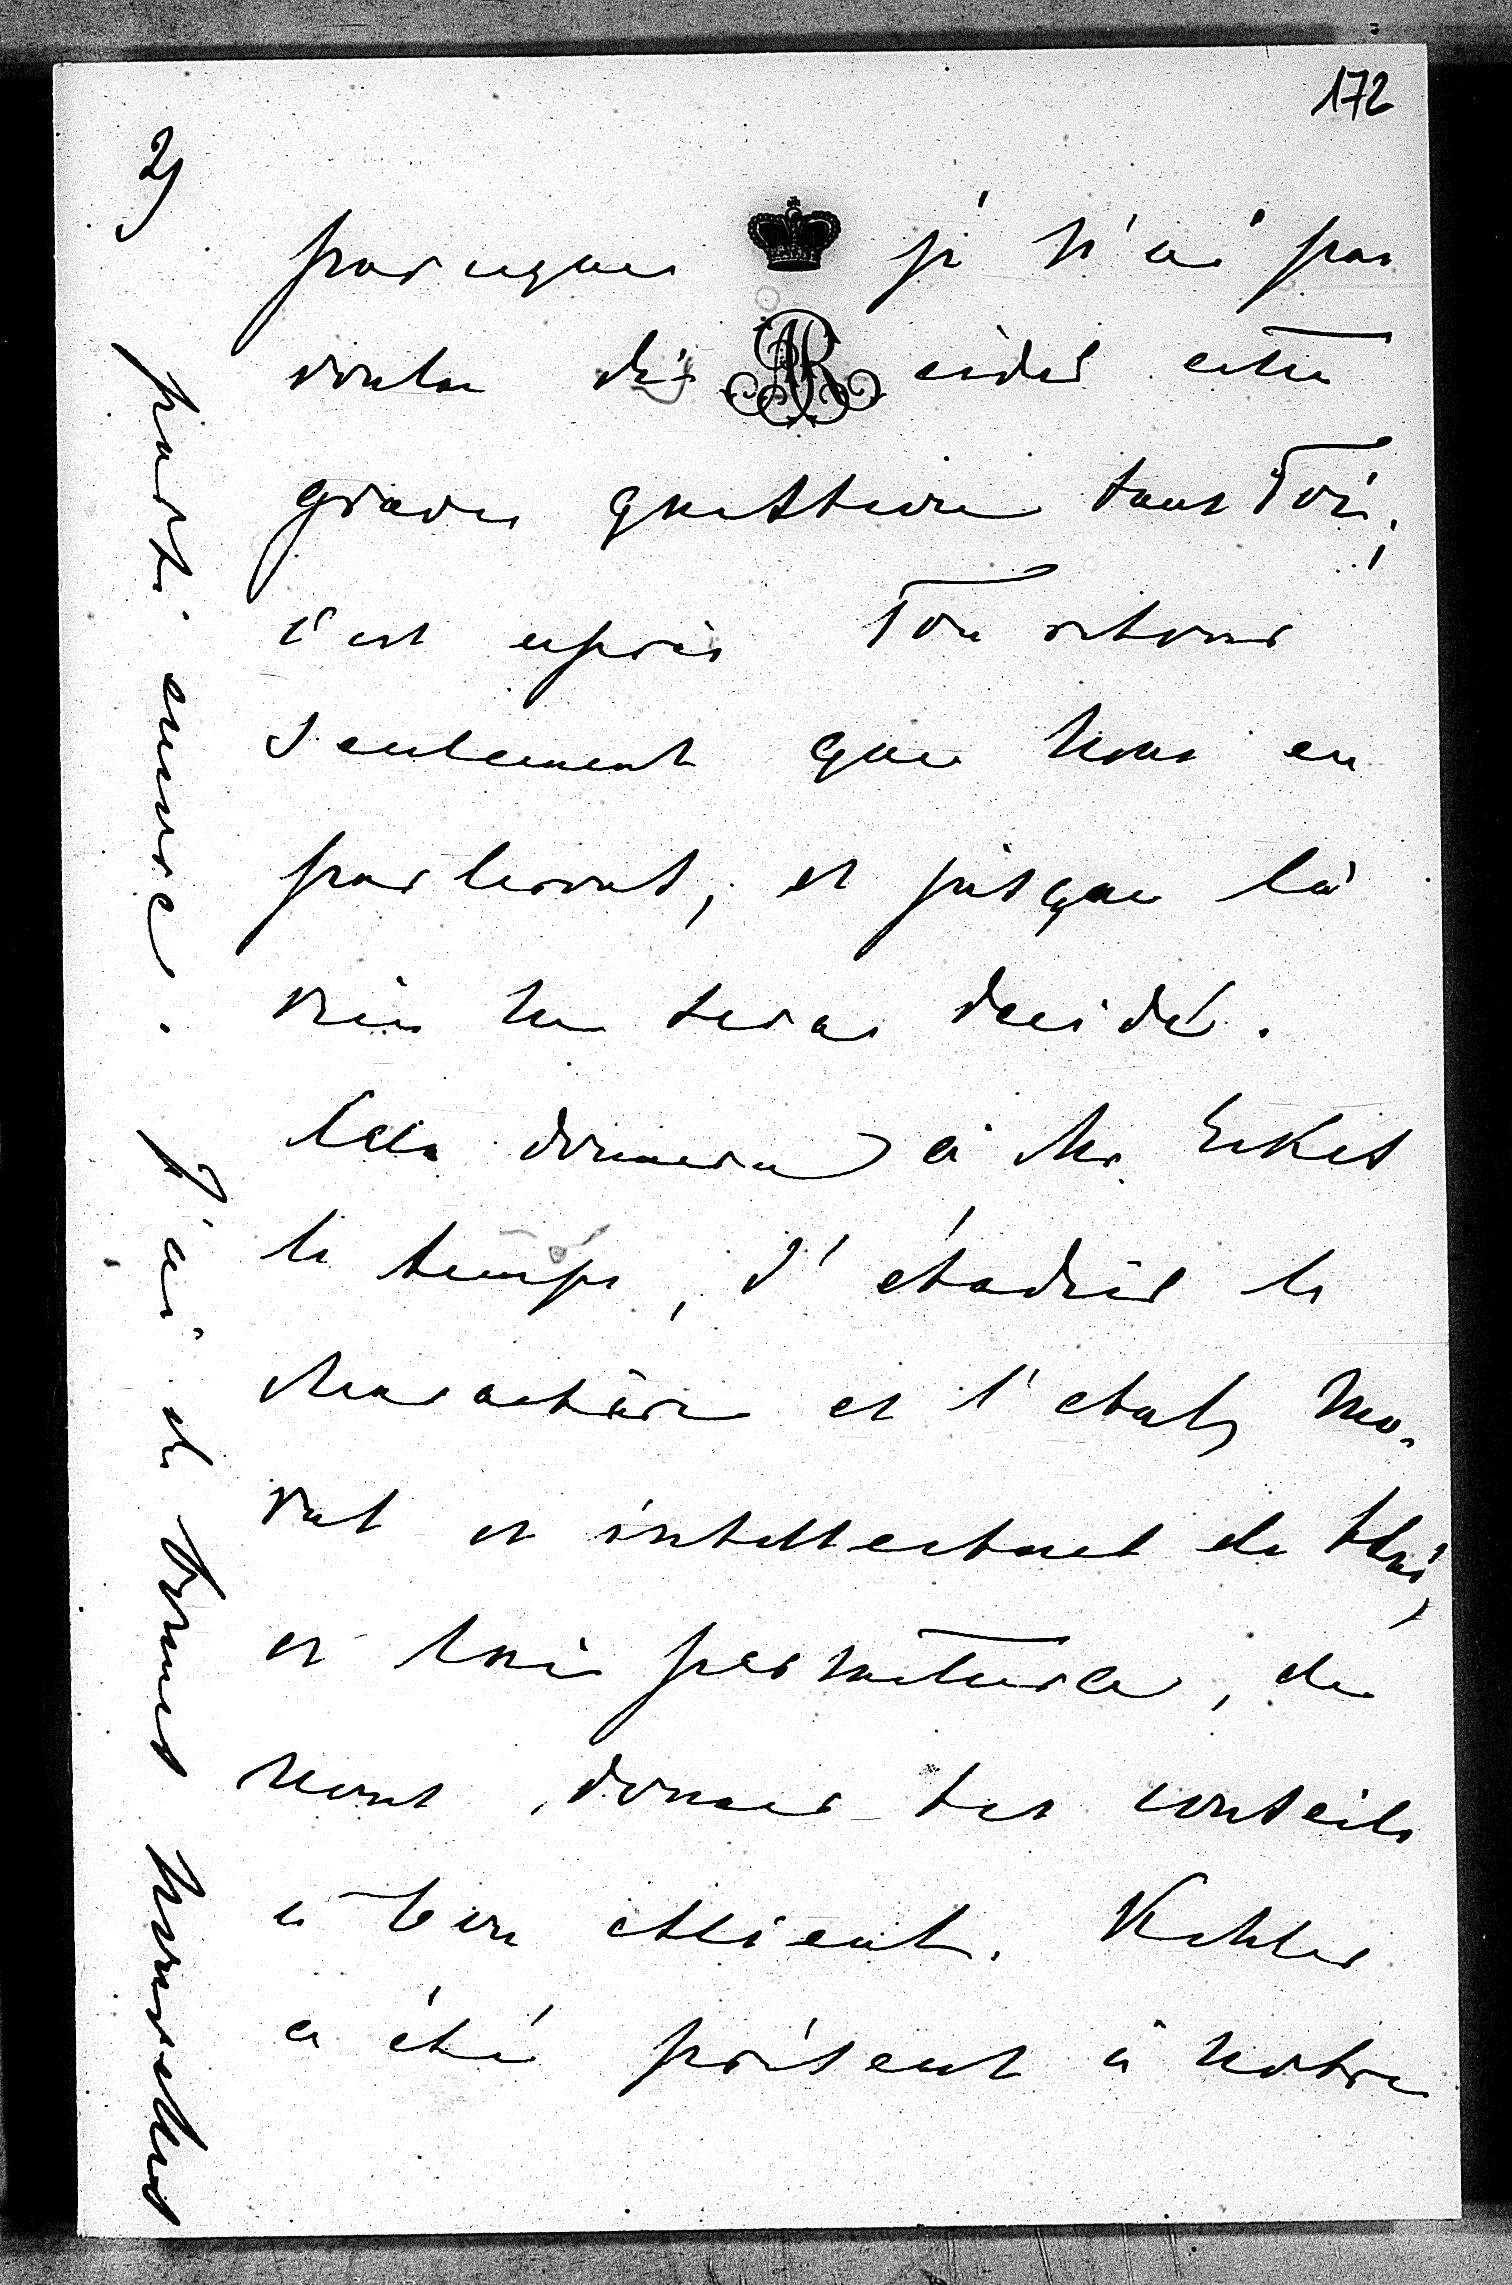 172
2)
parceque je n'ai pas
voulu dé AR cider cette
grave question sans Toi;
c'est après Ton retour
seulement que nous en
parlerons, et jusque là
rien ne sera decidé.
Cela donnera à Mr.
le temps, d'étudier le
charactère et l'etat mo-
ral et intellectuel de
et lui permettera, de
nous donner ses conseils
à bon essient. Kohler
a été présent à notre
parti encore. J'ai de bonnes nouvelles